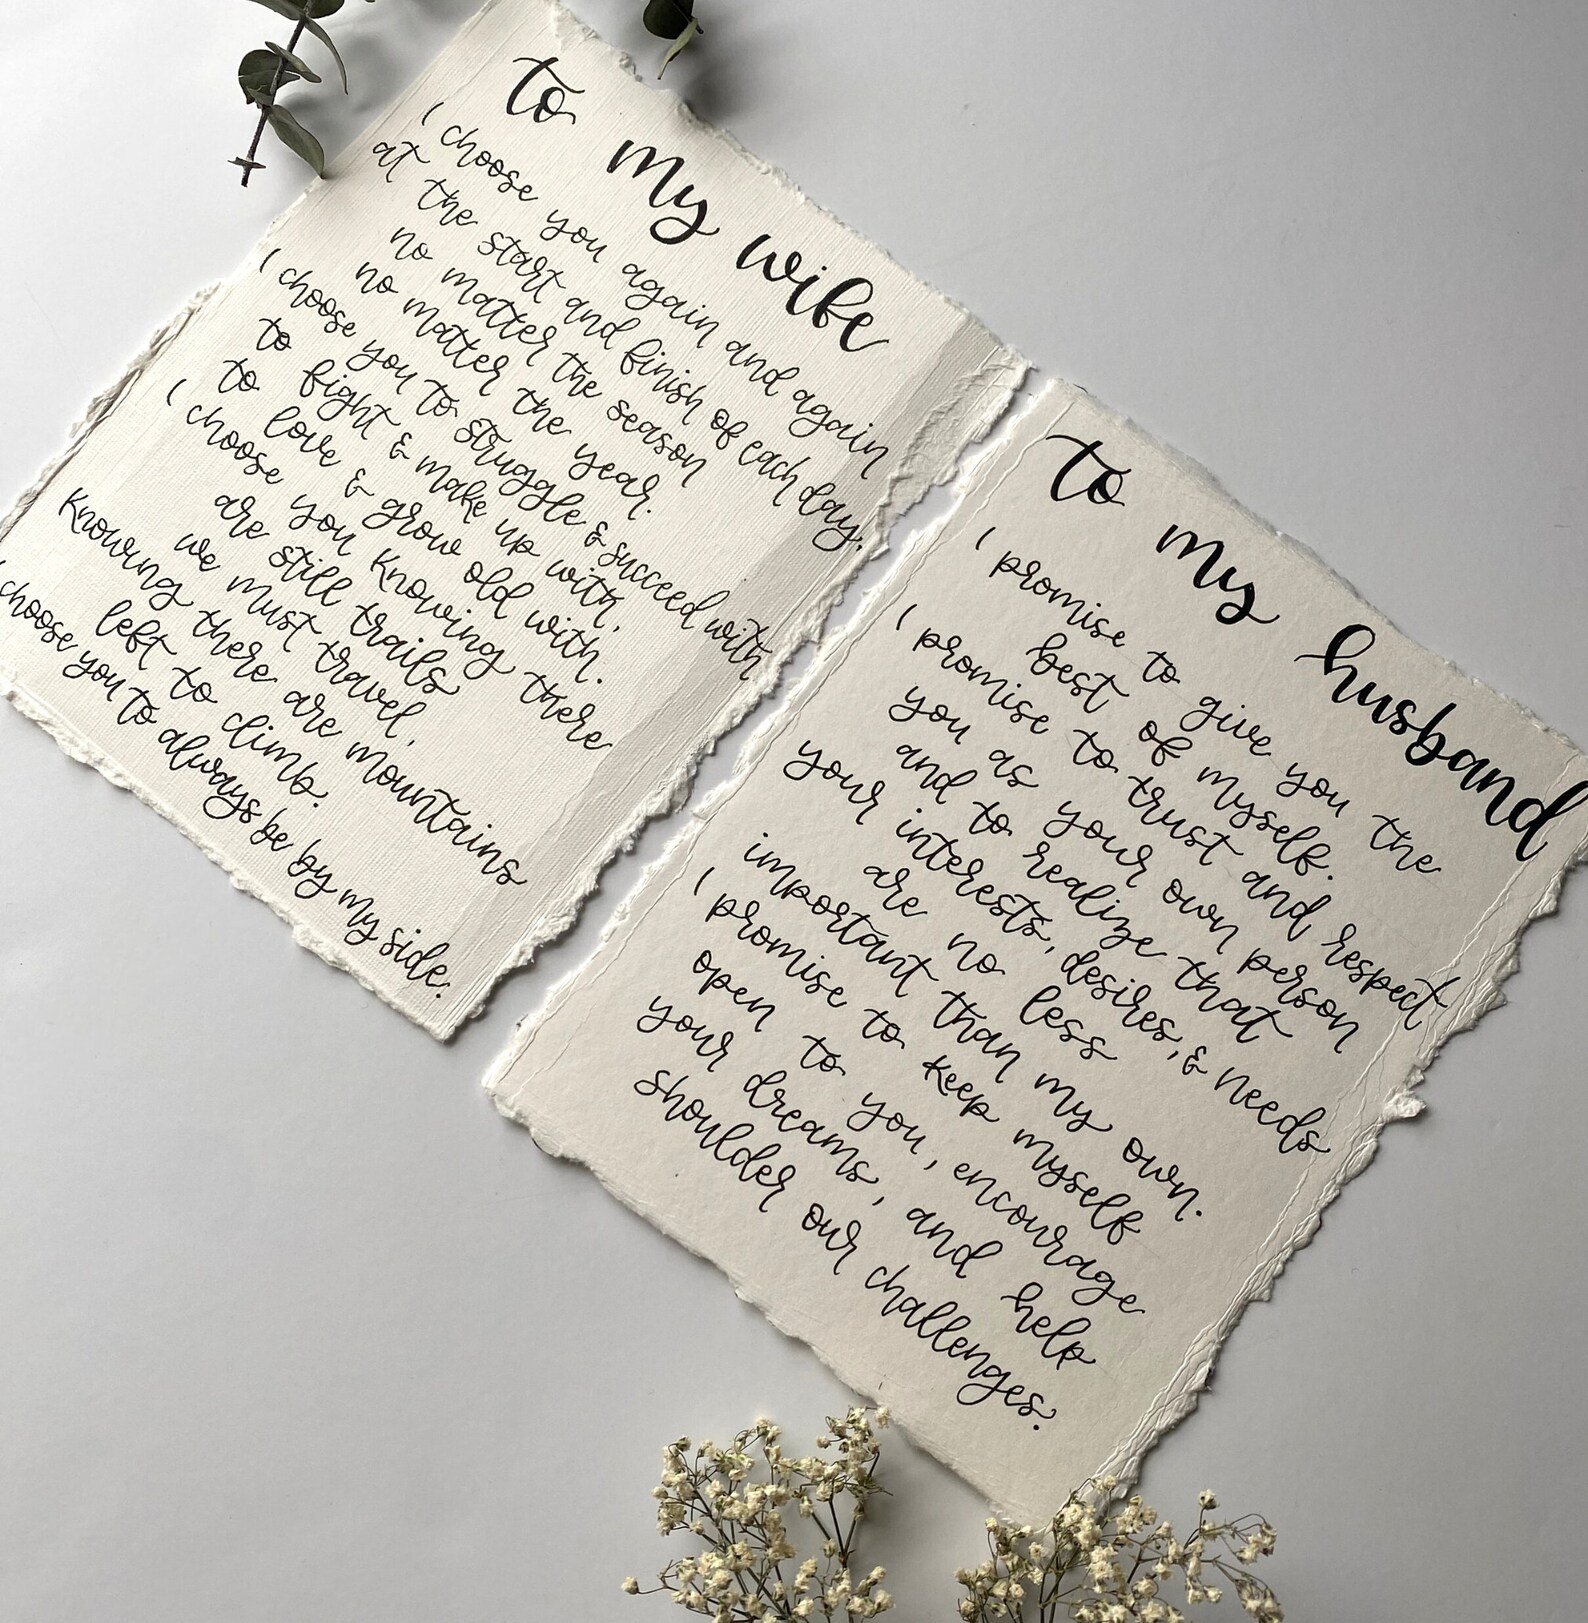 to my wife
I choose you again and again
at the start and finish of each day.
no matter the season
no matter the year.
I choose you to struggle & succeed with
to fight & make up with,
to love & grow old with.
I choose you knowing there
are still trails
we must travel,
knowing there are mountains
left to climb.
I choose you to always be by my side.
to my husband
I promise to give you the
best of myself.
I promise to trust and respect
you as your own person
and to realize that
your interests, desires, & needs
are no less
important than my own.
I promise to keep myself
open to you, encourage
your dreams, and help
shoulder our challenges.